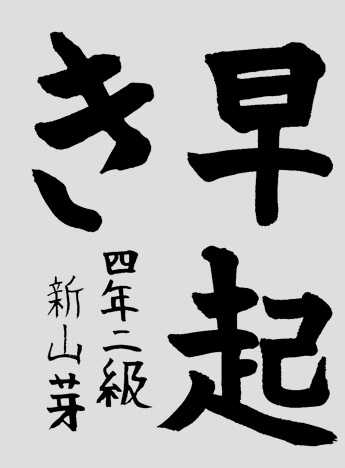 早起
き
四年二級
新山芽